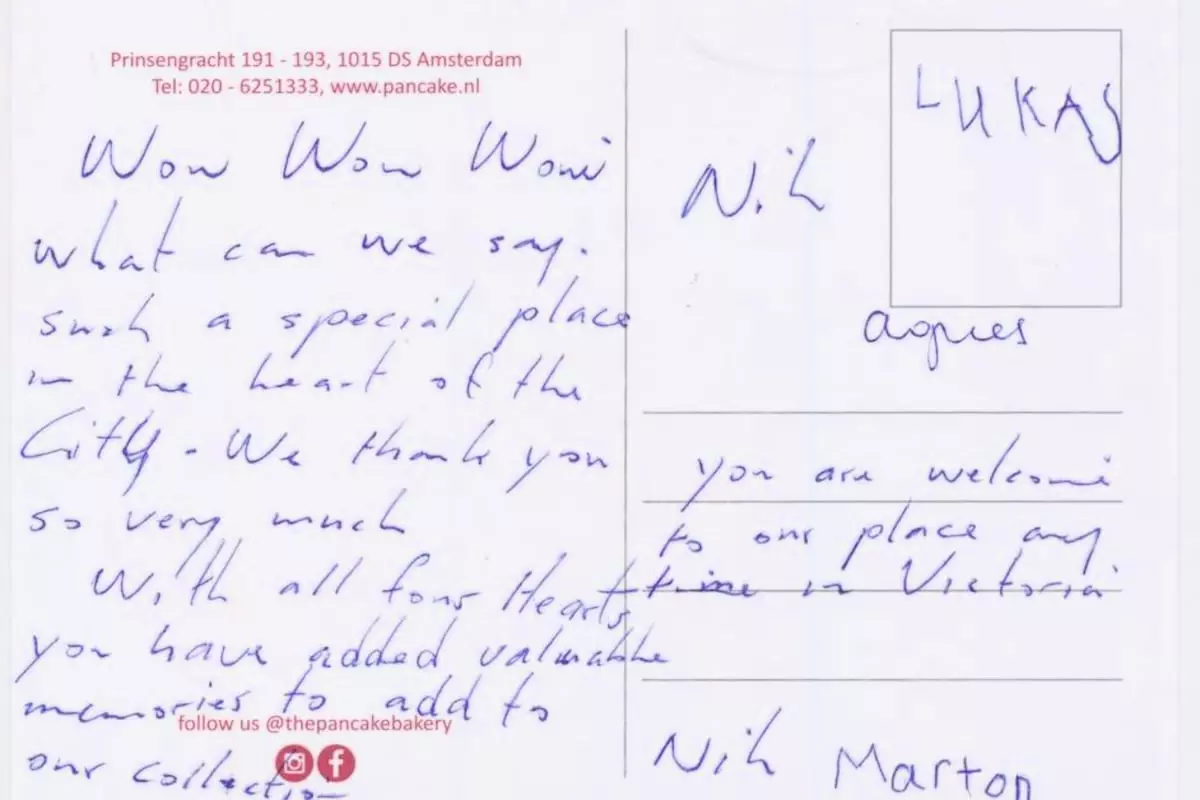 Prinsengracht 191 - 193, 1015 DS Amsterdam
Tel: 020 - 6251333, www.pancake.nl
Wow Wow Wow
what can we say.
such a special place
in the heart of the
City - We thank you
so very much
With all four Hearts
you have added valuable
memories to add to
our collection
follow us @thepancakebakery
LUKAS
Nik
agnes
you are welcome
to our place any
time in Victoria
Nik Marton